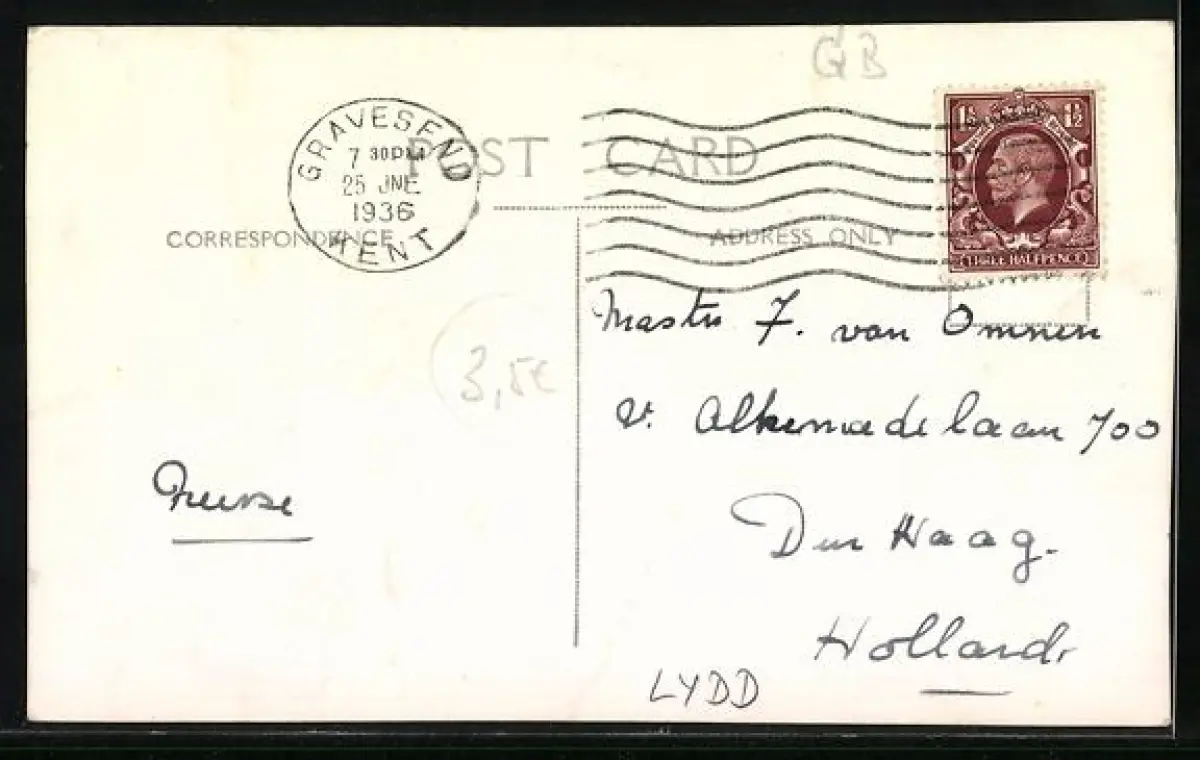 GB
GRAVESEND
7 30PM
25 JNE
1936
KENT
POST CARD
CORRESPONDENCE
ADDRESS ONLY
1½ 1½
THREE HALFPENCE
Master F. van Ommen
v. Alkemadelaan 700
3,5€
Den Haag.
Holland.
LYDD